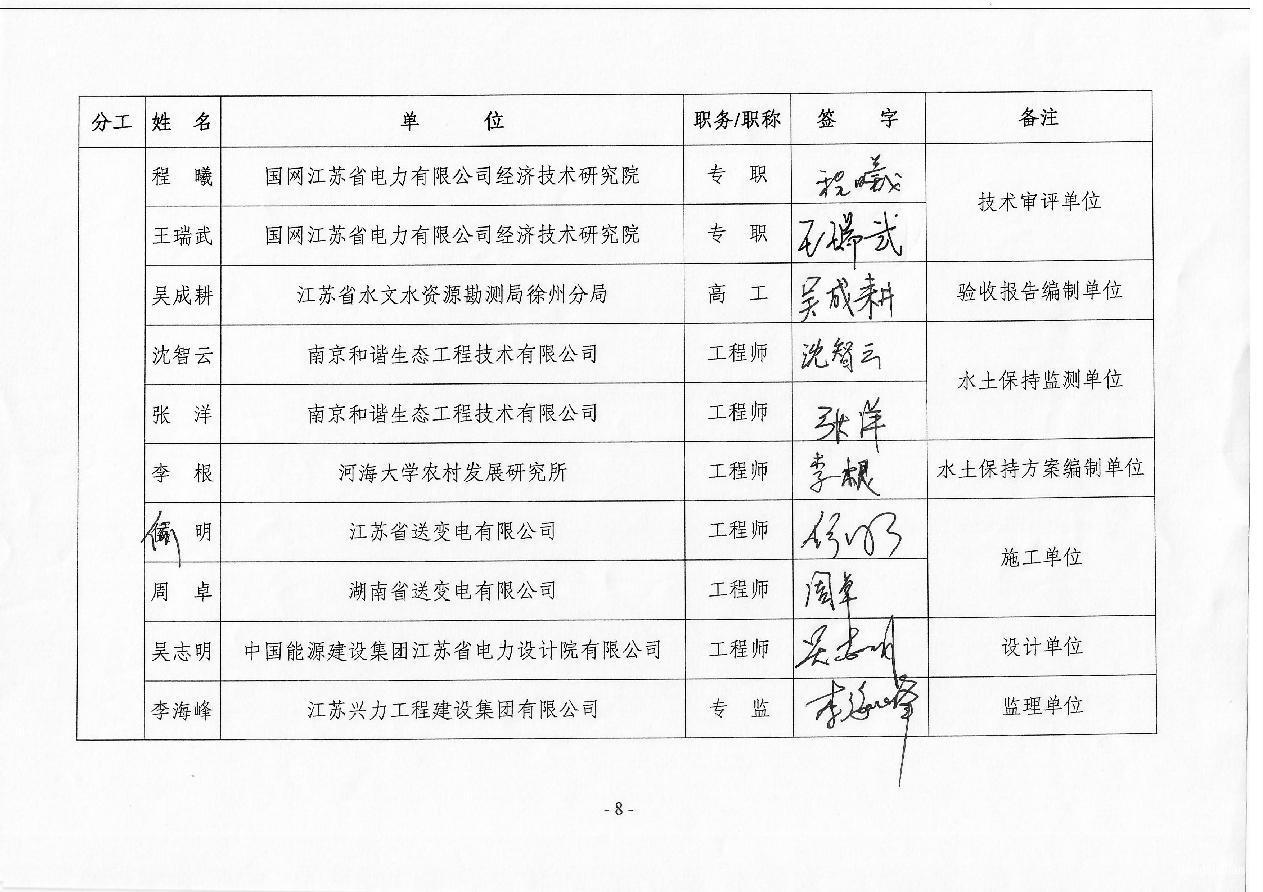 分工 姓 名 单 位 职务/职称 签 字 备注
程 曦 国网江苏省电力有限公司经济技术研究院 专 职 程曦 技术审评单位
王瑞武 国网江苏省电力有限公司经济技术研究院 专 职 王瑞武
吴成耕 江苏省水文水资源勘测局徐州分局 高 工 吴成耕 验收报告编制单位
沈智云 南京和谐生态工程技术有限公司 工程师 沈智云 水土保持监测单位
张 洋 南京和谐生态工程技术有限公司 工程师 张洋
李 根 河海大学农村发展研究所 工程师 李根 水土保持方案编制单位
明 江苏省送变电有限公司 工程师 施工单位
周 卓 湖南省送变电有限公司 工程师 周卓
吴志明 中国能源建设集团江苏省电力设计院有限公司 工程师 吴志明 设计单位
李海峰 江苏兴力工程建设集团有限公司 专 监 李海峰 监理单位
- 8 -